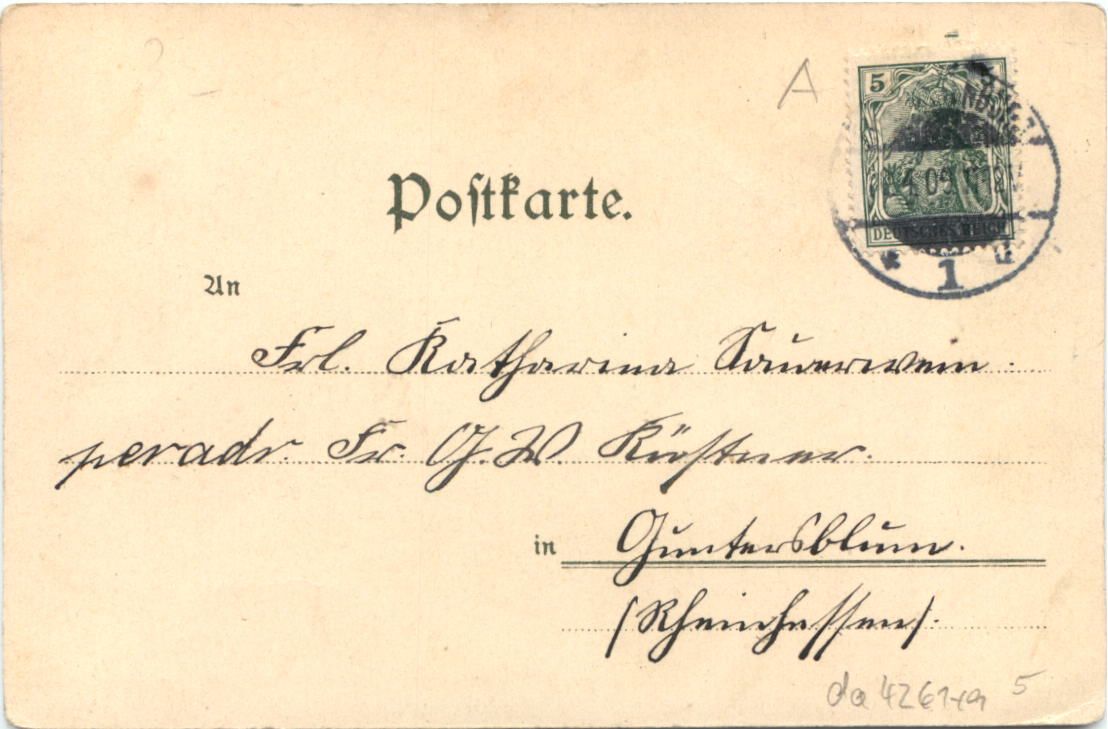 A
5
DEUTSCHES REICH
09
1
Postkarte.
An
Frl. Katharina Sauerwein.
peradr. Fr. G. W. Küstner.
in Guntersblum.
(Rheinhessen).
da 4261
5